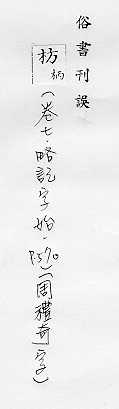 俗書刊誤
枋
柄
(卷七·略記字始·P.570)(周禮奇字)